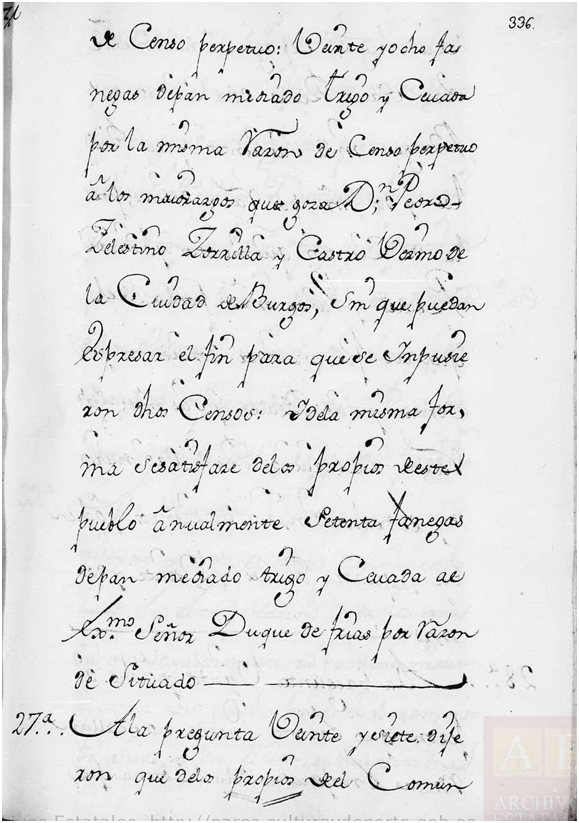 336.
de Censo perpetuo: Veinte y ocho fa
negas depan mediado trigo y Cevada
por la misma Razon de Censo perpetuo
â los maiorazgos que goza D.n Pedro
Zelestino Zorrilla y Castro Vezino de
la Ciudad de Burgos, Sin que puedan
espresar el fin para que se Inpusie
ron dhos Censos: Y dela misma for,
ma sesatisface delos propios deste
pueblo ânualmente Setenta fanegas
depan mediado trigo y Cevada al
Ex.mo Señor Duque de frias por Razon
de Situado
27.a.. A la pregunta Veinte y siete dije
ron que delos propios del Comun
ARCHIV
ESTATAL